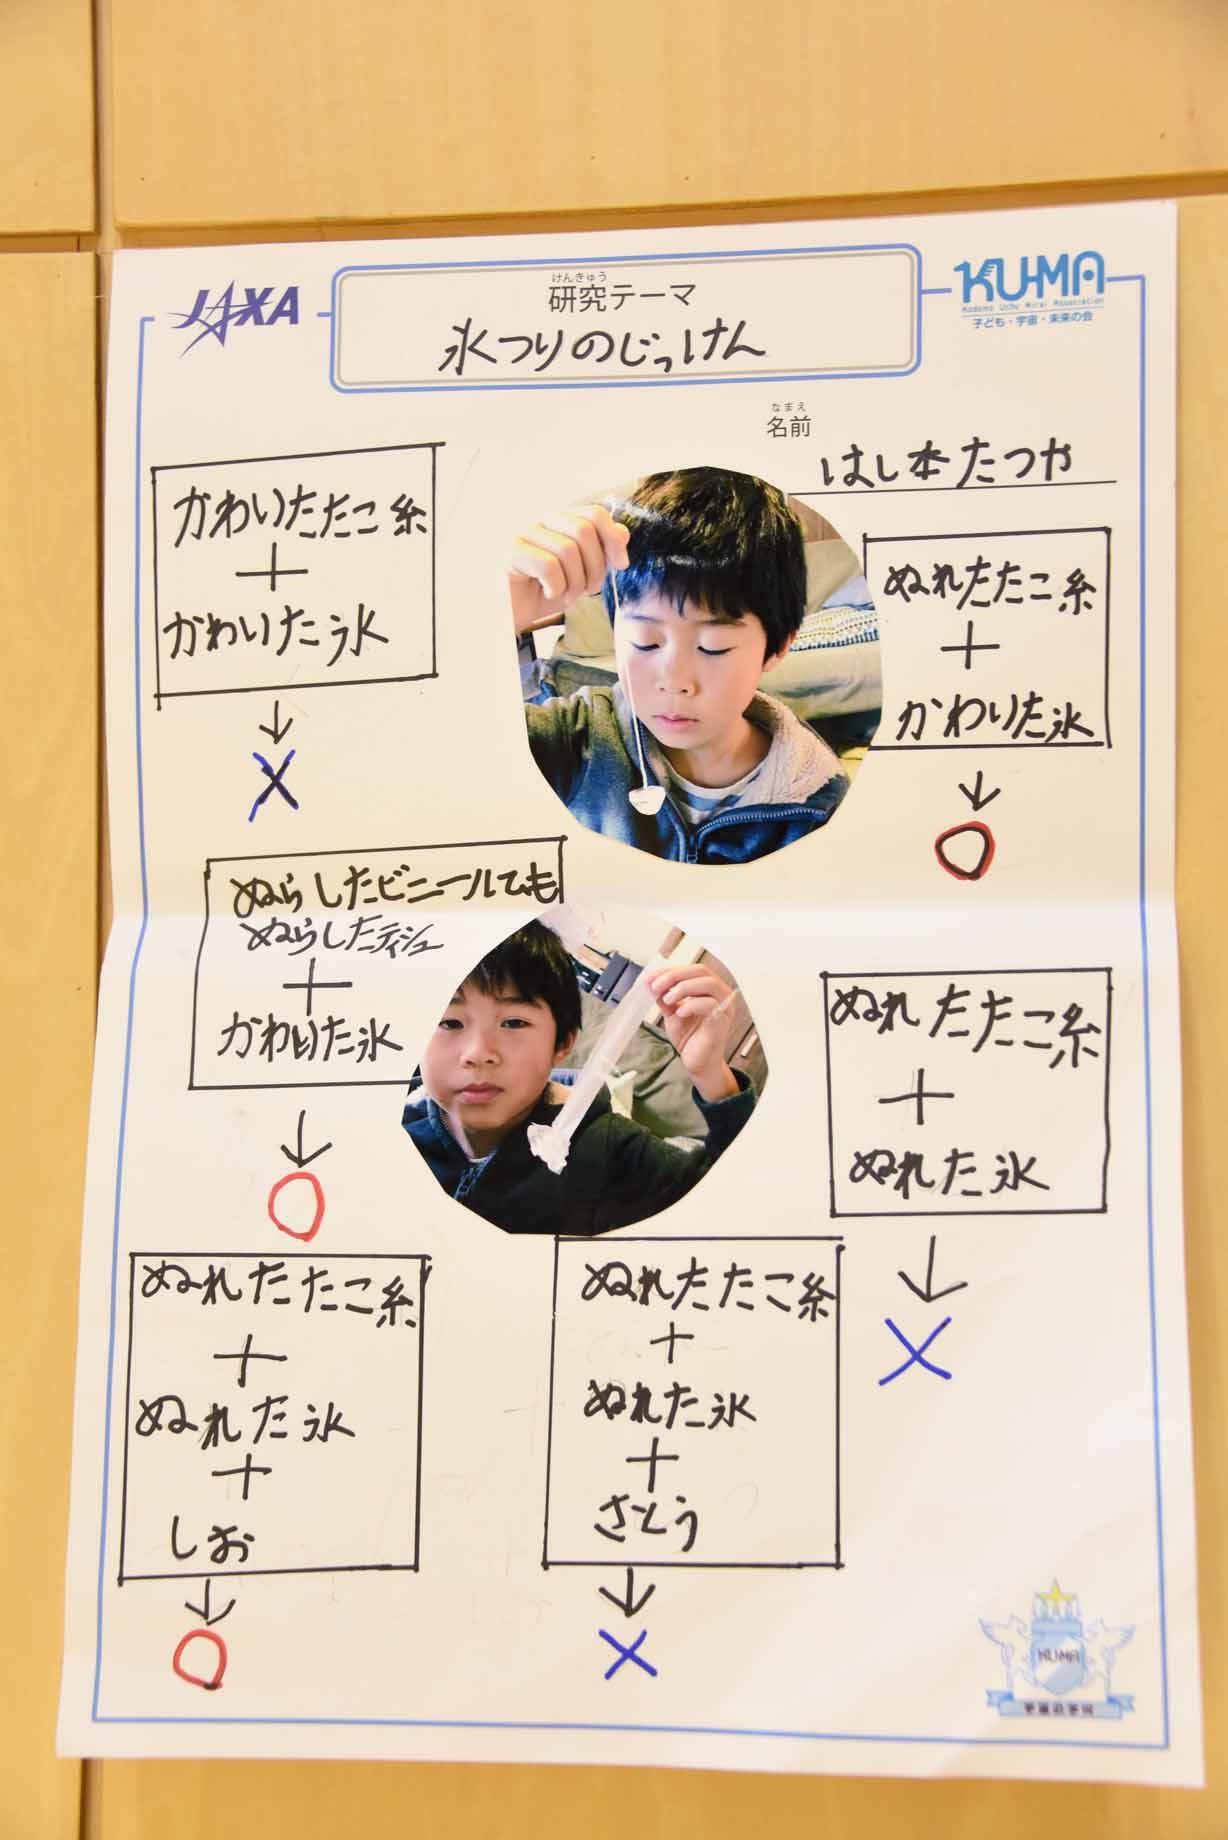 JAXA
けんきゅう
研究テーマ
氷つりのじっけん
KU-MA
Kodomo Uchu Mirai Association
子ども・宇宙・未来の会
なまえ
名前
はし本たつや
かわいたたこ糸
+
かわいた氷
↓
×
ぬれたたこ糸
+
かわいた氷
↓
○
ぬらしたビニールひも
ぬらしたティシュー
+
かわいた氷
↓
○
ぬれたたこ糸
+
ぬれた氷
↓
×
ぬれたたこ糸
+
ぬれた氷
+
しお
↓
○
ぬれたたこ糸
+
ぬれた氷
+
さとう
↓
×
KUMA